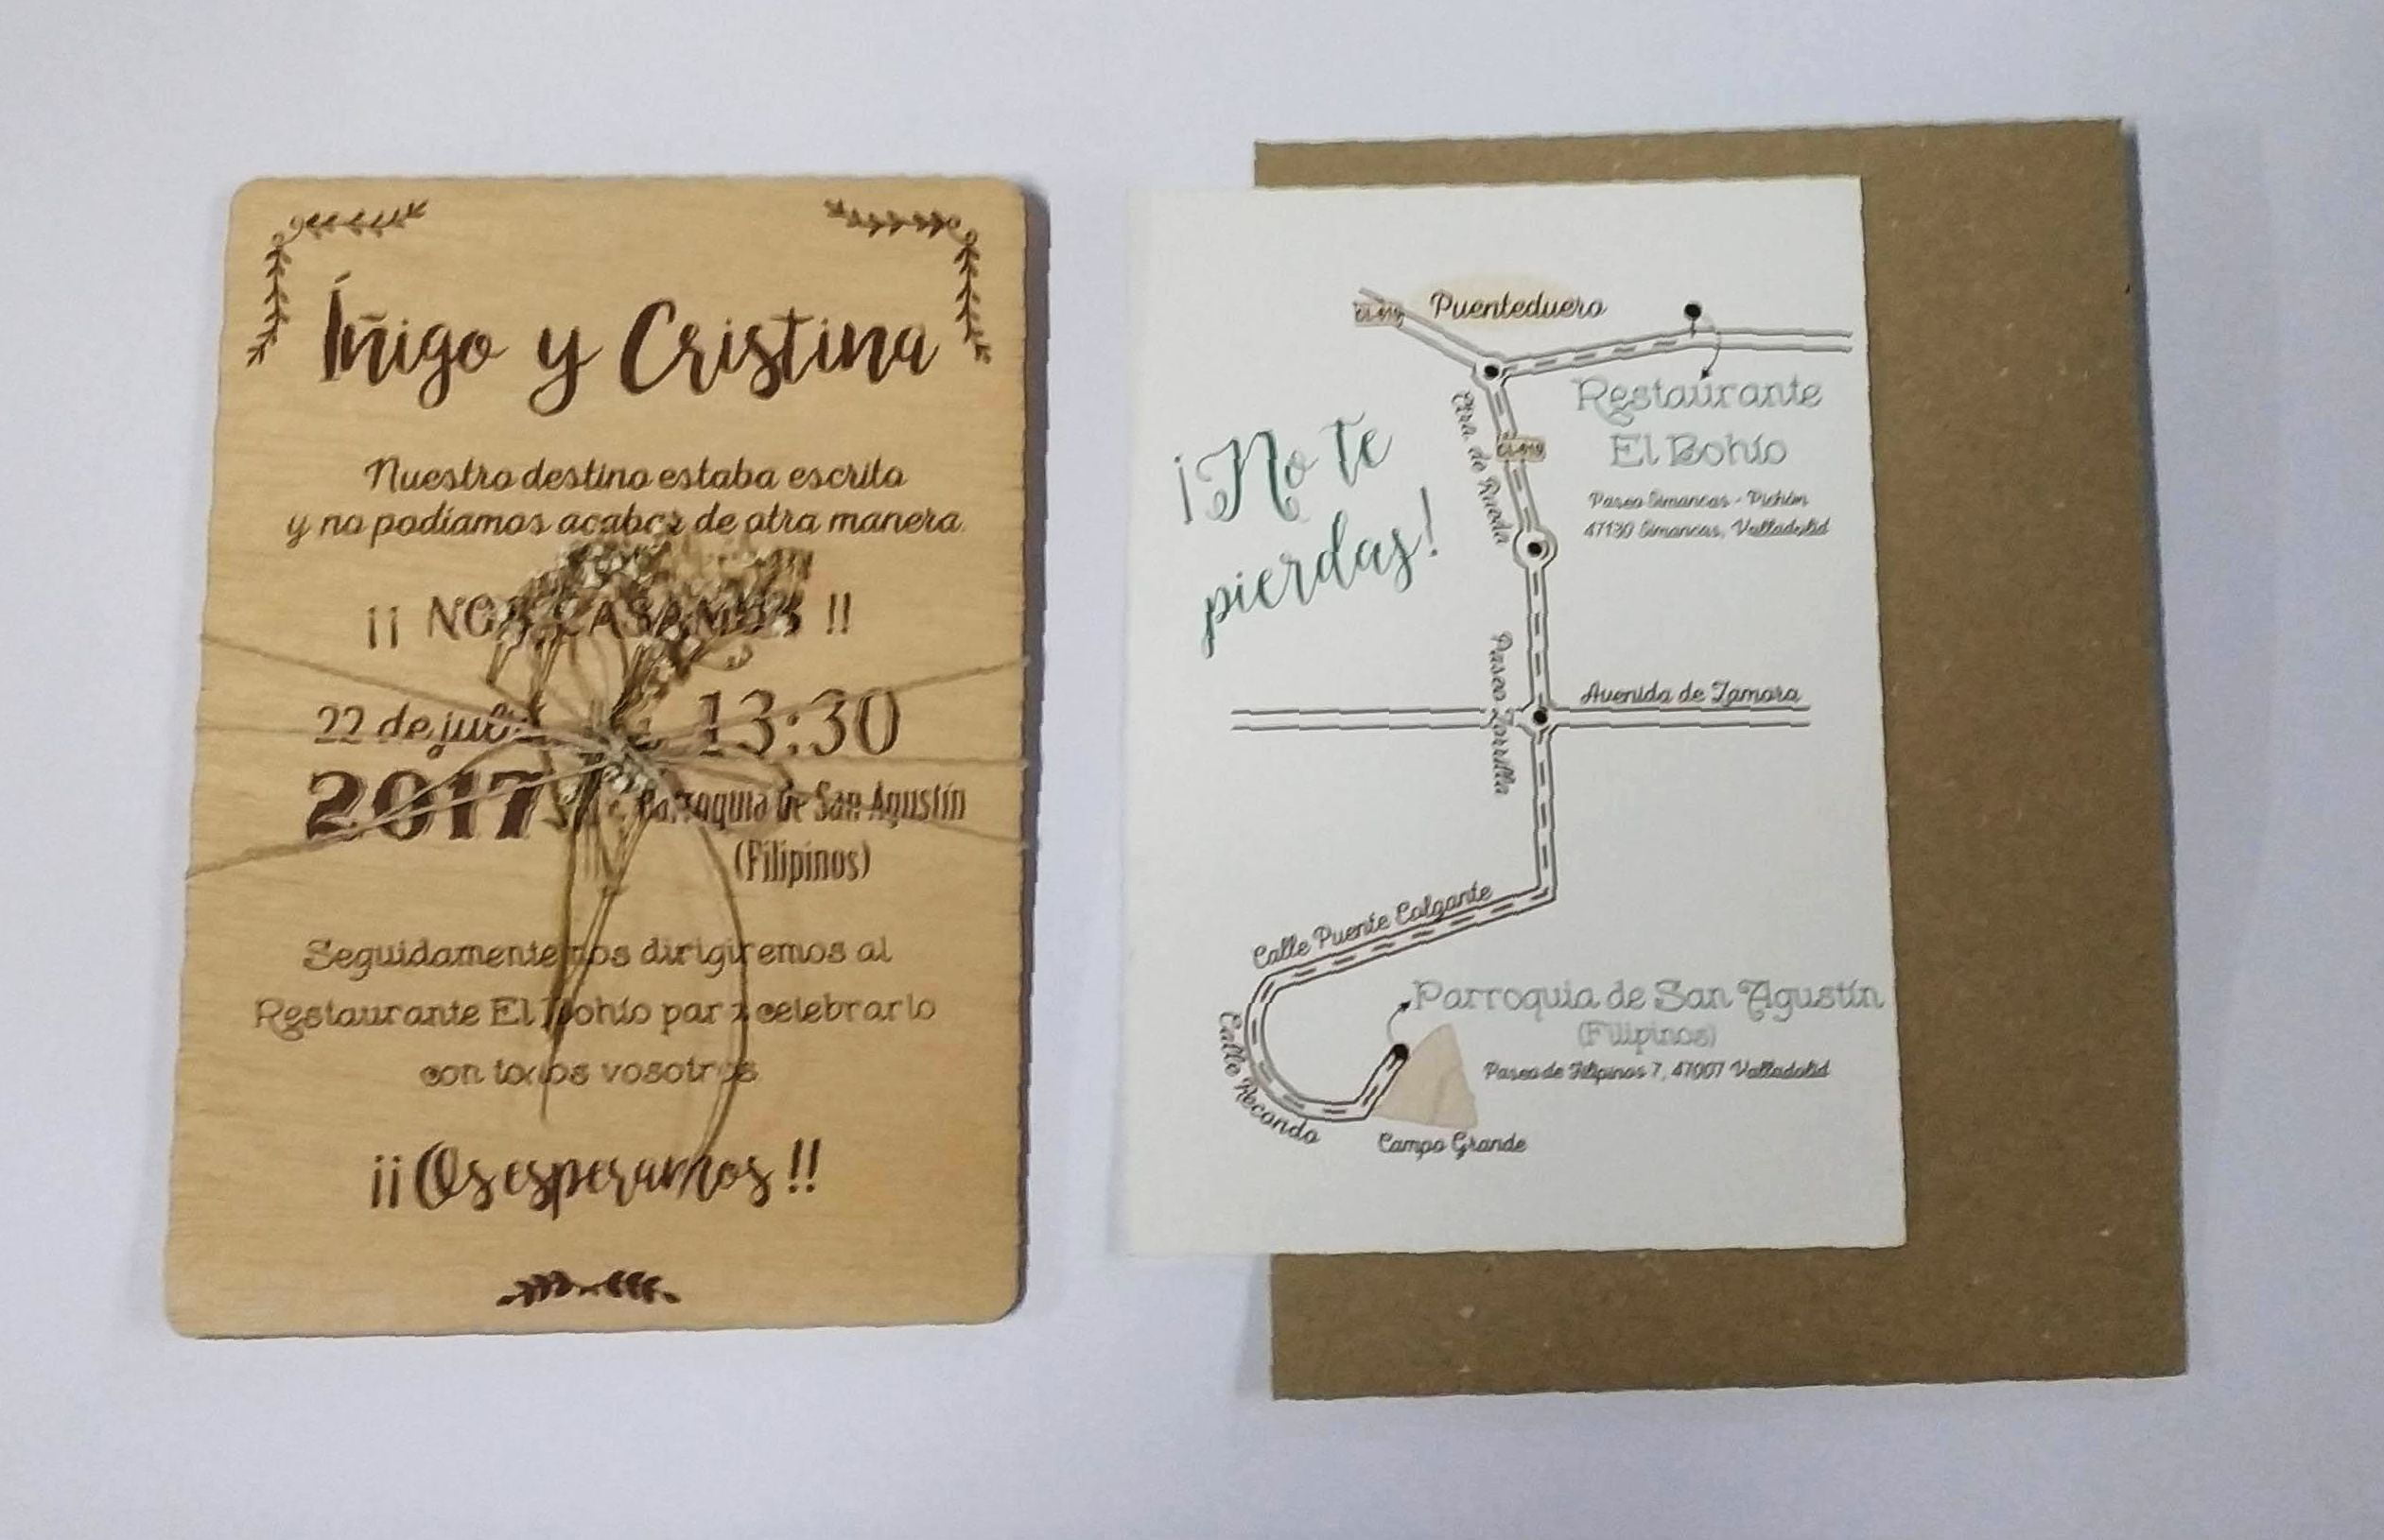 Íñigo y Cristina
Nuestro destino estaba escrito
y no podíamos acabar de otra manera
¡¡ NOS CASAMOS !!
22 de julio
13:30
2017
Parroquia de San Agustín
(Filipinos)
Seguidamente nos dirigiremos al
Restaurante El Bohío para celebrarlo
con todos vosotros
¡¡Os esperamos!!
¡No te
pierdas!
Puenteduero
Restaurante
El Bohío
Paseo Simancas - Pichón
47130 Simancas, Valladolid
Ctra. de Rueda
Paseo Zorrilla
Avenida de Zamora
Calle Puente Colgante
Calle Recondo
Parroquia de San Agustín
(Filipinos)
Paseo de Filipinos 7, 47007 Valladolid
Campo Grande